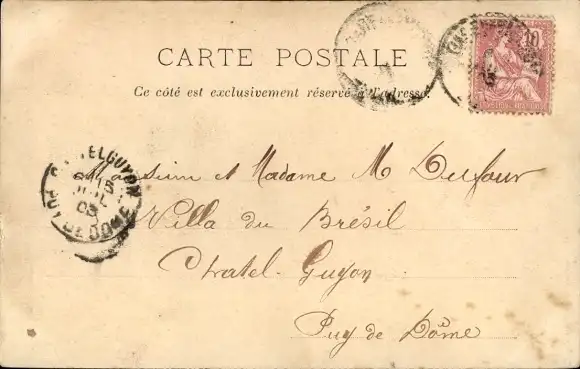 CARTE POSTALE
Ce côté est exclusivement réservé à l'adresse.
10
Monsieur et Madame M Dufour
Villa du Brésil
Chatel-Guyon
Puy de Dôme
CHATELGUYON
15
JUIL
03
PUY DE DOME